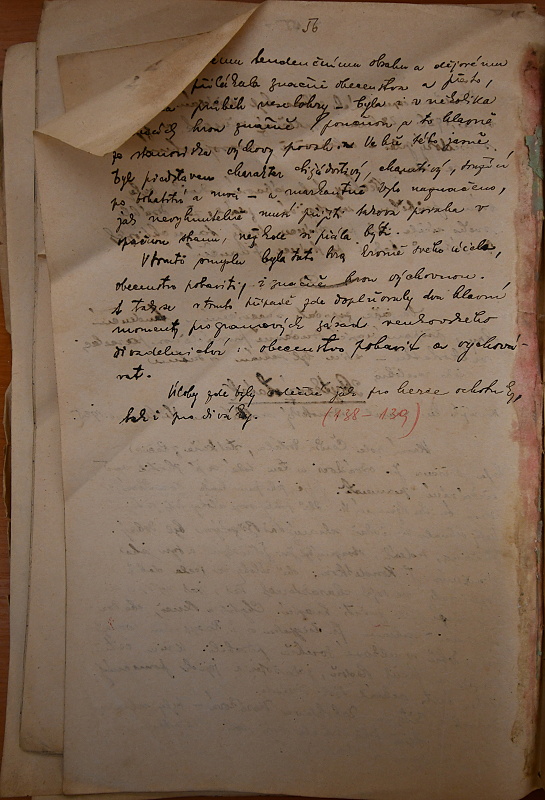 56
tendenčnímu obsahu a dějovému
přilákala značně obecenstva a přesto,
průběh neveselohry – byla i v několika
hrou značně poučnou a to hlavně
ze stanoviska výchovy povah. Ve hře této jasně
byl představen charakter ctižádostivý, chamtivý,
po bohatství a moci – a markantně bylo naznačeno,
jak nevyhnutelně musí přijíti taková povaha v
opačnou stranu, než kde si přála býti.
V tomto smyslu byla tato hra kromě svého účelu,
obecenstvo pobaviti, i značně hrou výchovnou.
A tak se v tomto případě zde doplňovaly dva hlavní
momenty programových zásad venkovského
divadelnictví: obecenstvo pobavit a vychová-
vat.
Úlohy zde byly vděčné jak pro herce ochotníky,
tak i pro diváky. (138–139)